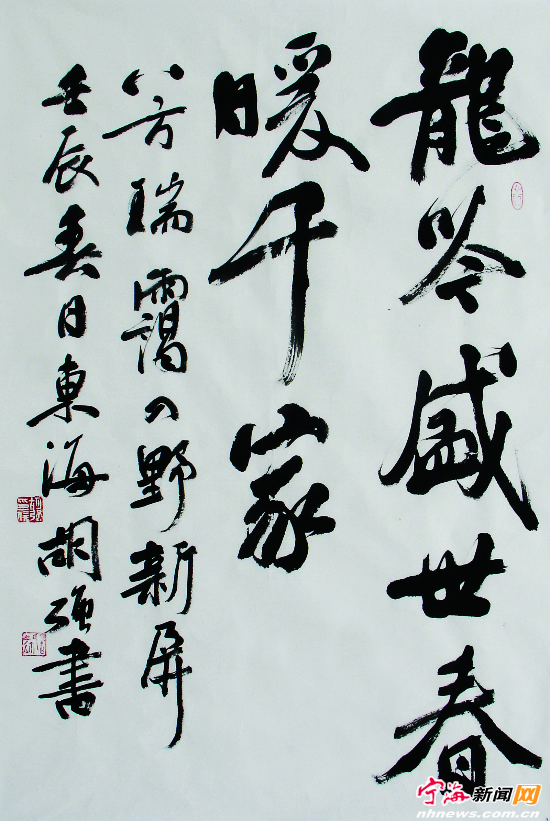 龍吟盛世春
暖千家
八方瑞靄四野新屏
壬辰春日東海胡强書
宁海新闻网
nhnews.com.cn